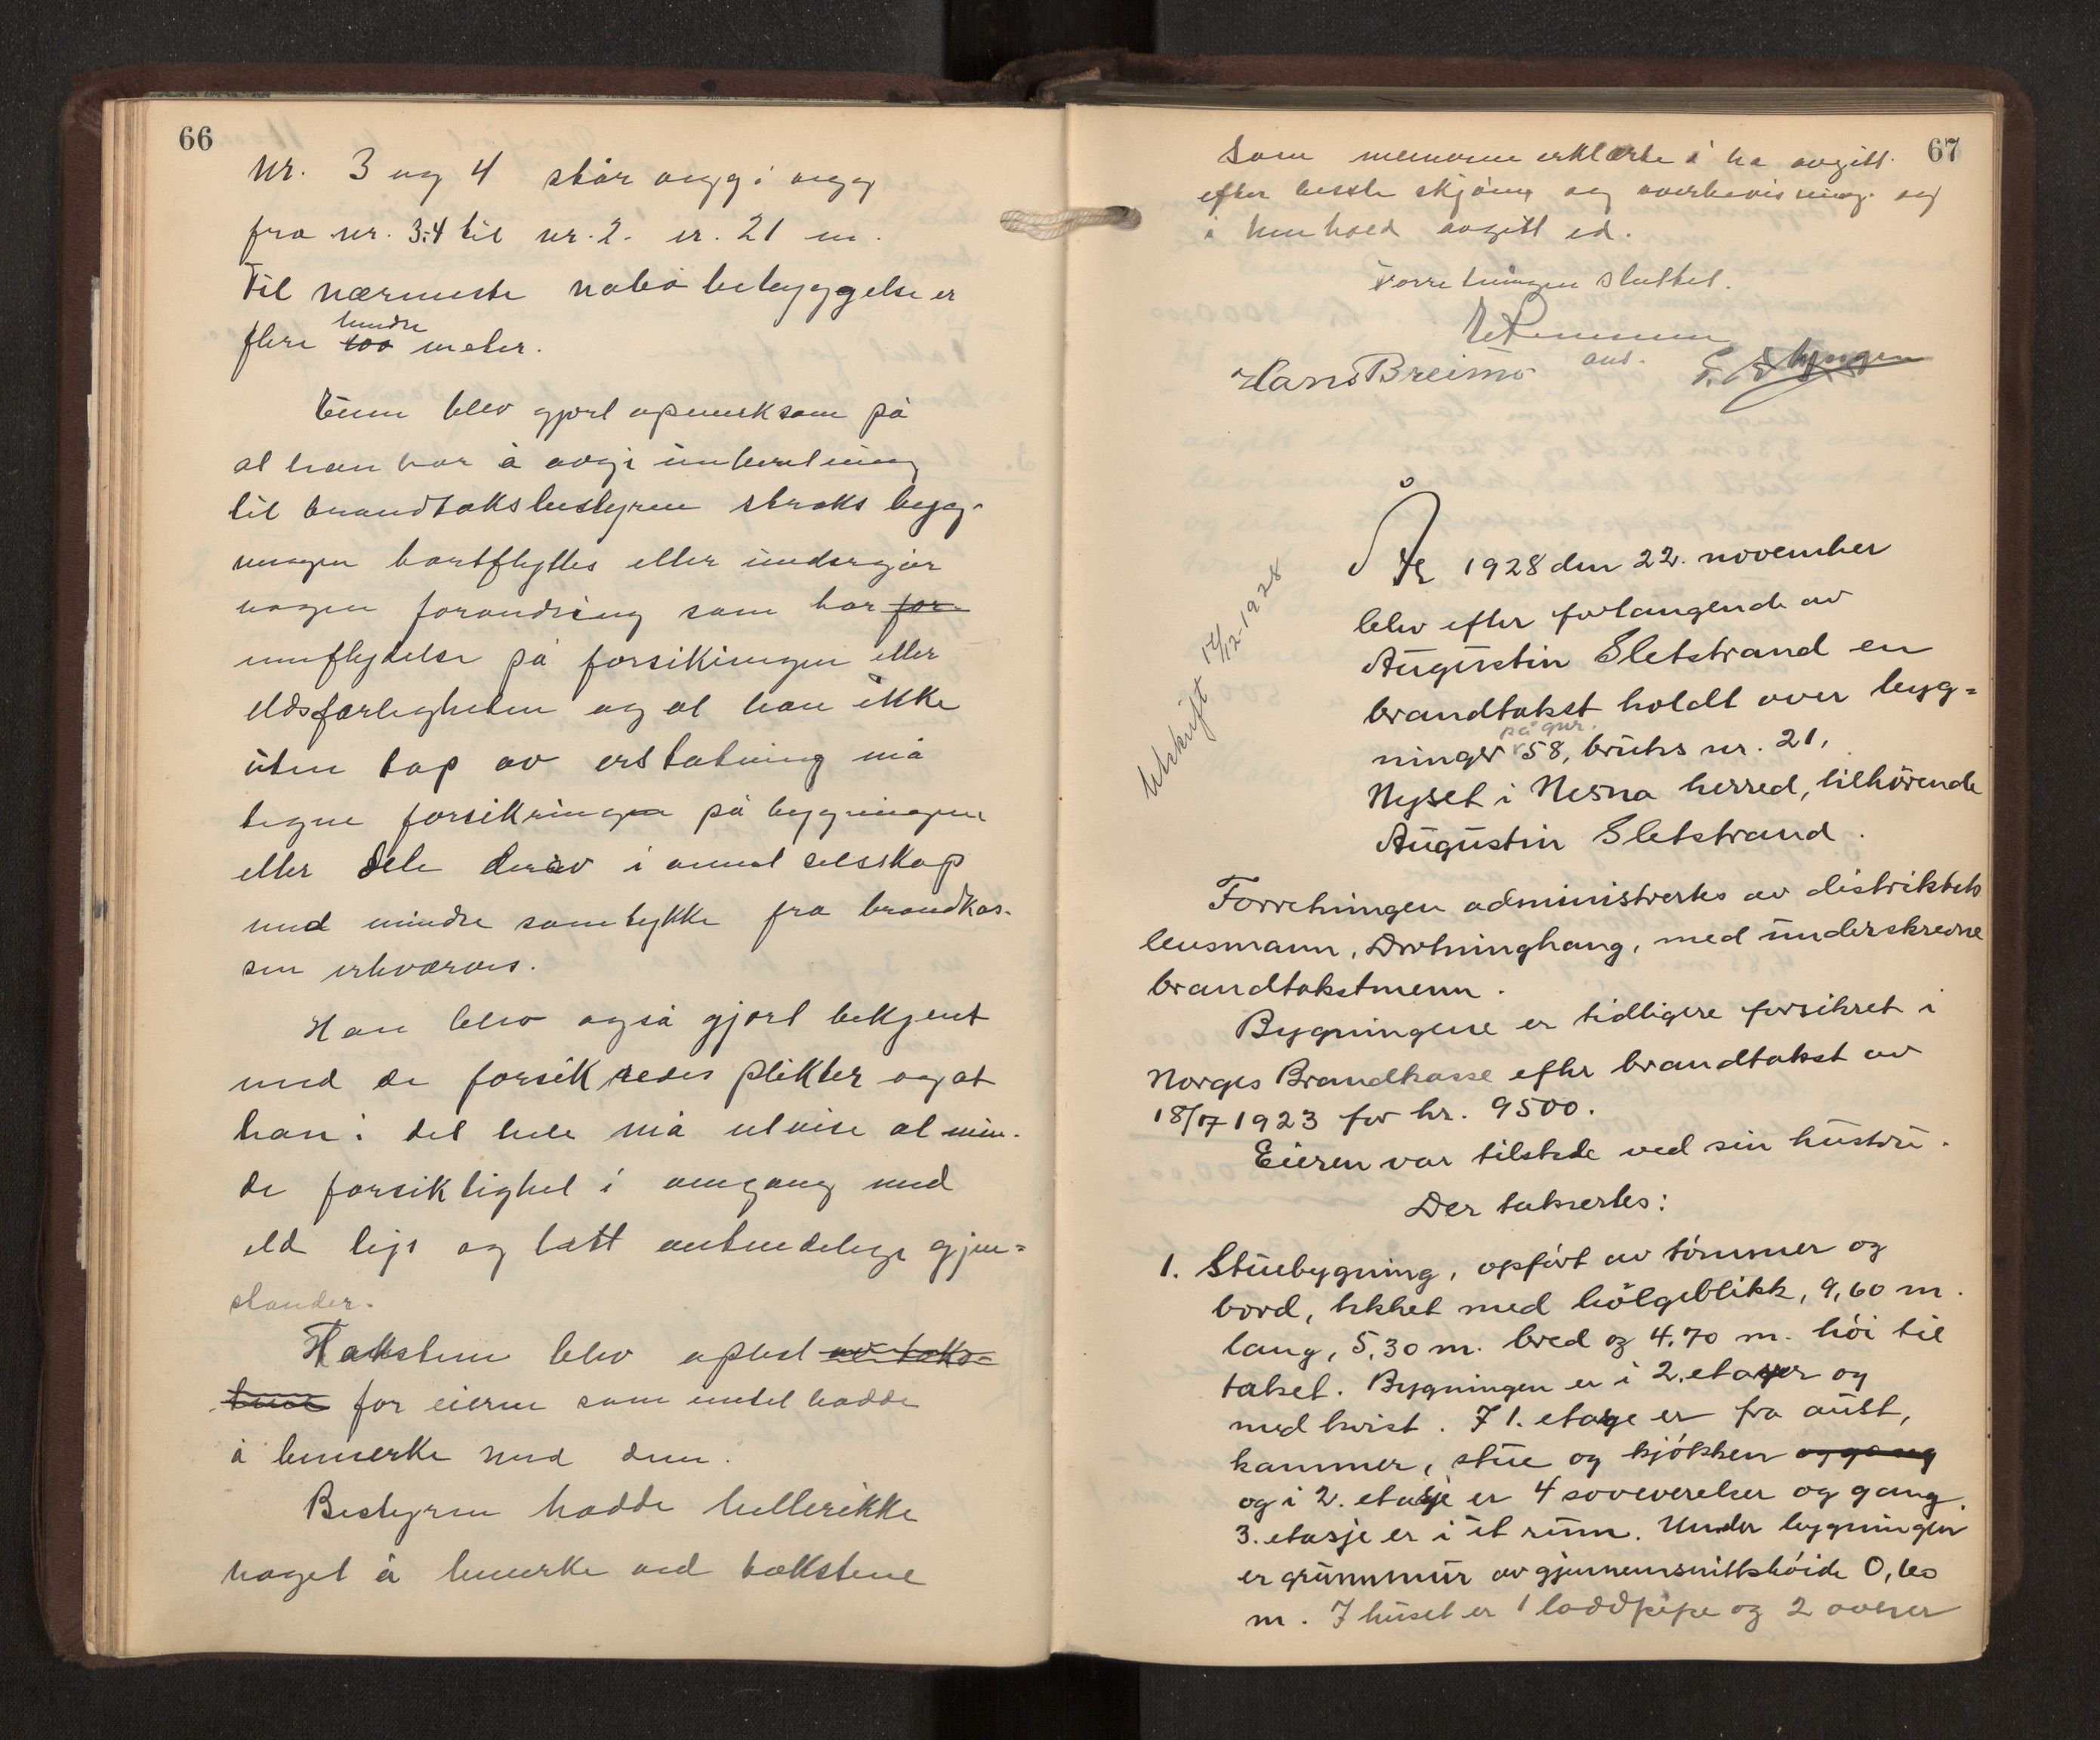 66
Nr. 3 og 4 står vegg i vegg
fra nr. 3-4 til nr. 2. er. 21 m.
Til nærmeste nabobebyggelse er
flere ~~100~~ hundre meter.
Eieren blev gjort opmerksom på
at han har å avgi innberetning
til brandtakstbestyren straks byg-
ningen bortflyttes eller undergår
nogen forandring som har ~~for~~
innflydelse på forsikringen eller
ildsfarligheten og at han ikke
uten tap av erstatning må
tegne forsikringen på bygningene
eller dele derav i annet selskap
med mindre samtykke fra brandkas-
sen erhverves.
Han blev også gjort bekjent
med de forsikredes plikter og at
han i det hele må utvise al min-
de forsiktighet i omgang med
ild lys og lett antendelige gjen-
stander.
Taksten blev oplest ~~av takst-~~
~~tene~~ for eieren som intet hadde
å bemerke med den.
Bestyren hadde heller ikke
noget å bemerke ved takstene
67
Som mennene erklærte å ha avgitt
efter beste skjønn og overbevisning og
i henhold avgitt ed.
Forretningen sluttet.
Hans Breimo
ans.
Utskrift 14/12-1928
År 1928 den 22. november
blev efter forlangende av
Augustin Sletstrand en
brandtakst holdt over byg-
ninger på gnr. 58, bruks nr. 21,
Nyset i Nesna herred, tilhörende
Augustin Sletstrand.
Forretningen administrertes av distriktets
lensmann, Drotninghaug, med underskrevne
brandtakstmenn.
Bygningene er tidligere forsikret i
Norges Brandkasse efter brandtakst av
18/7 1923 for kr. 9500.
Eieren var tilstede ved sin hustru.
Der takseres:
1. Stuebygning, opfört av tömmer og
bord, tekket med bölgeblikk, 9,60 m.
lang, 5,30 m. bred og 4,70 m. höi til
taket. Bygningen er i 2. etasjer og
med kvist. I 1. etasje er fra aust,
kammer, stue og kjökken ~~og gang~~
og i 2. etasje er 4 soveverelser og gang.
3. etasje er i et rum. Under bygningen
er grunnmur av gjennemsnittshöide 0,60
m. I huset er 1 loddpipe og 2 ovner